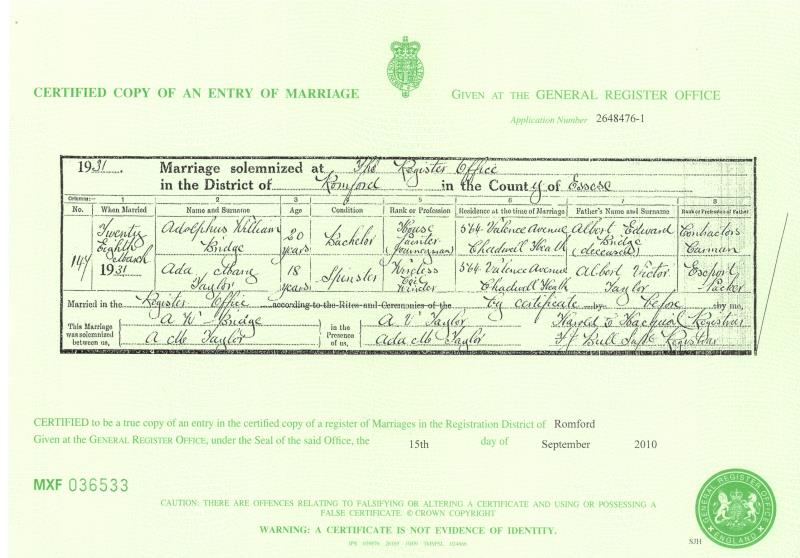 CERTIFIED COPY OF AN ENTRY OF MARRIAGE
GIVEN AT THE GENERAL REGISTER OFFICE
Application Number 2648476-1
1931. Marriage solemnized at The Register Office
in the District of Romford in the County of Essex
Columns:— 1 2 3 4 5 6 7 8
No. When Married Name and Surname Age Condition Rank or Profession Residence at the time of Marriage Father's Name and Surname Rank or Profession of Father
147
Twenty Eighth March 1931
Adolphus William Bridge
20 years
Bachelor
House Painter (Journeyman)
564 Valence Avenue Chadwell Heath
Albert Edward Bridge (deceased)
Contractors Carman
Ada May Taylor
18 years
Spinster
Wireless Coil Winder
564 Valence Avenue Chadwell Heath
Albert Victor Taylor
Export Packer
Married in the Register Office according to the Rites and Ceremonies of the by certificate by before by me,
This Marriage was solemnized between us,
A W Bridge
A M Taylor
in the Presence of us,
A V Taylor
Ada M Taylor
Harold Registrar
Bull Supt Registrar
CERTIFIED to be a true copy of an entry in the certified copy of a register of Marriages in the Registration District of Romford
Given at the GENERAL REGISTER OFFICE, under the Seal of the said Office, the 15th day of September 2010
MXF 036533
CAUTION: THERE ARE OFFENCES RELATING TO FALSIFYING OR ALTERING A CERTIFICATE AND USING OR POSSESSING A
FALSE CERTIFICATE. © CROWN COPYRIGHT
WARNING: A CERTIFICATE IS NOT EVIDENCE OF IDENTITY.
GENERAL REGISTER OFFICE
ENGLAND
SJH